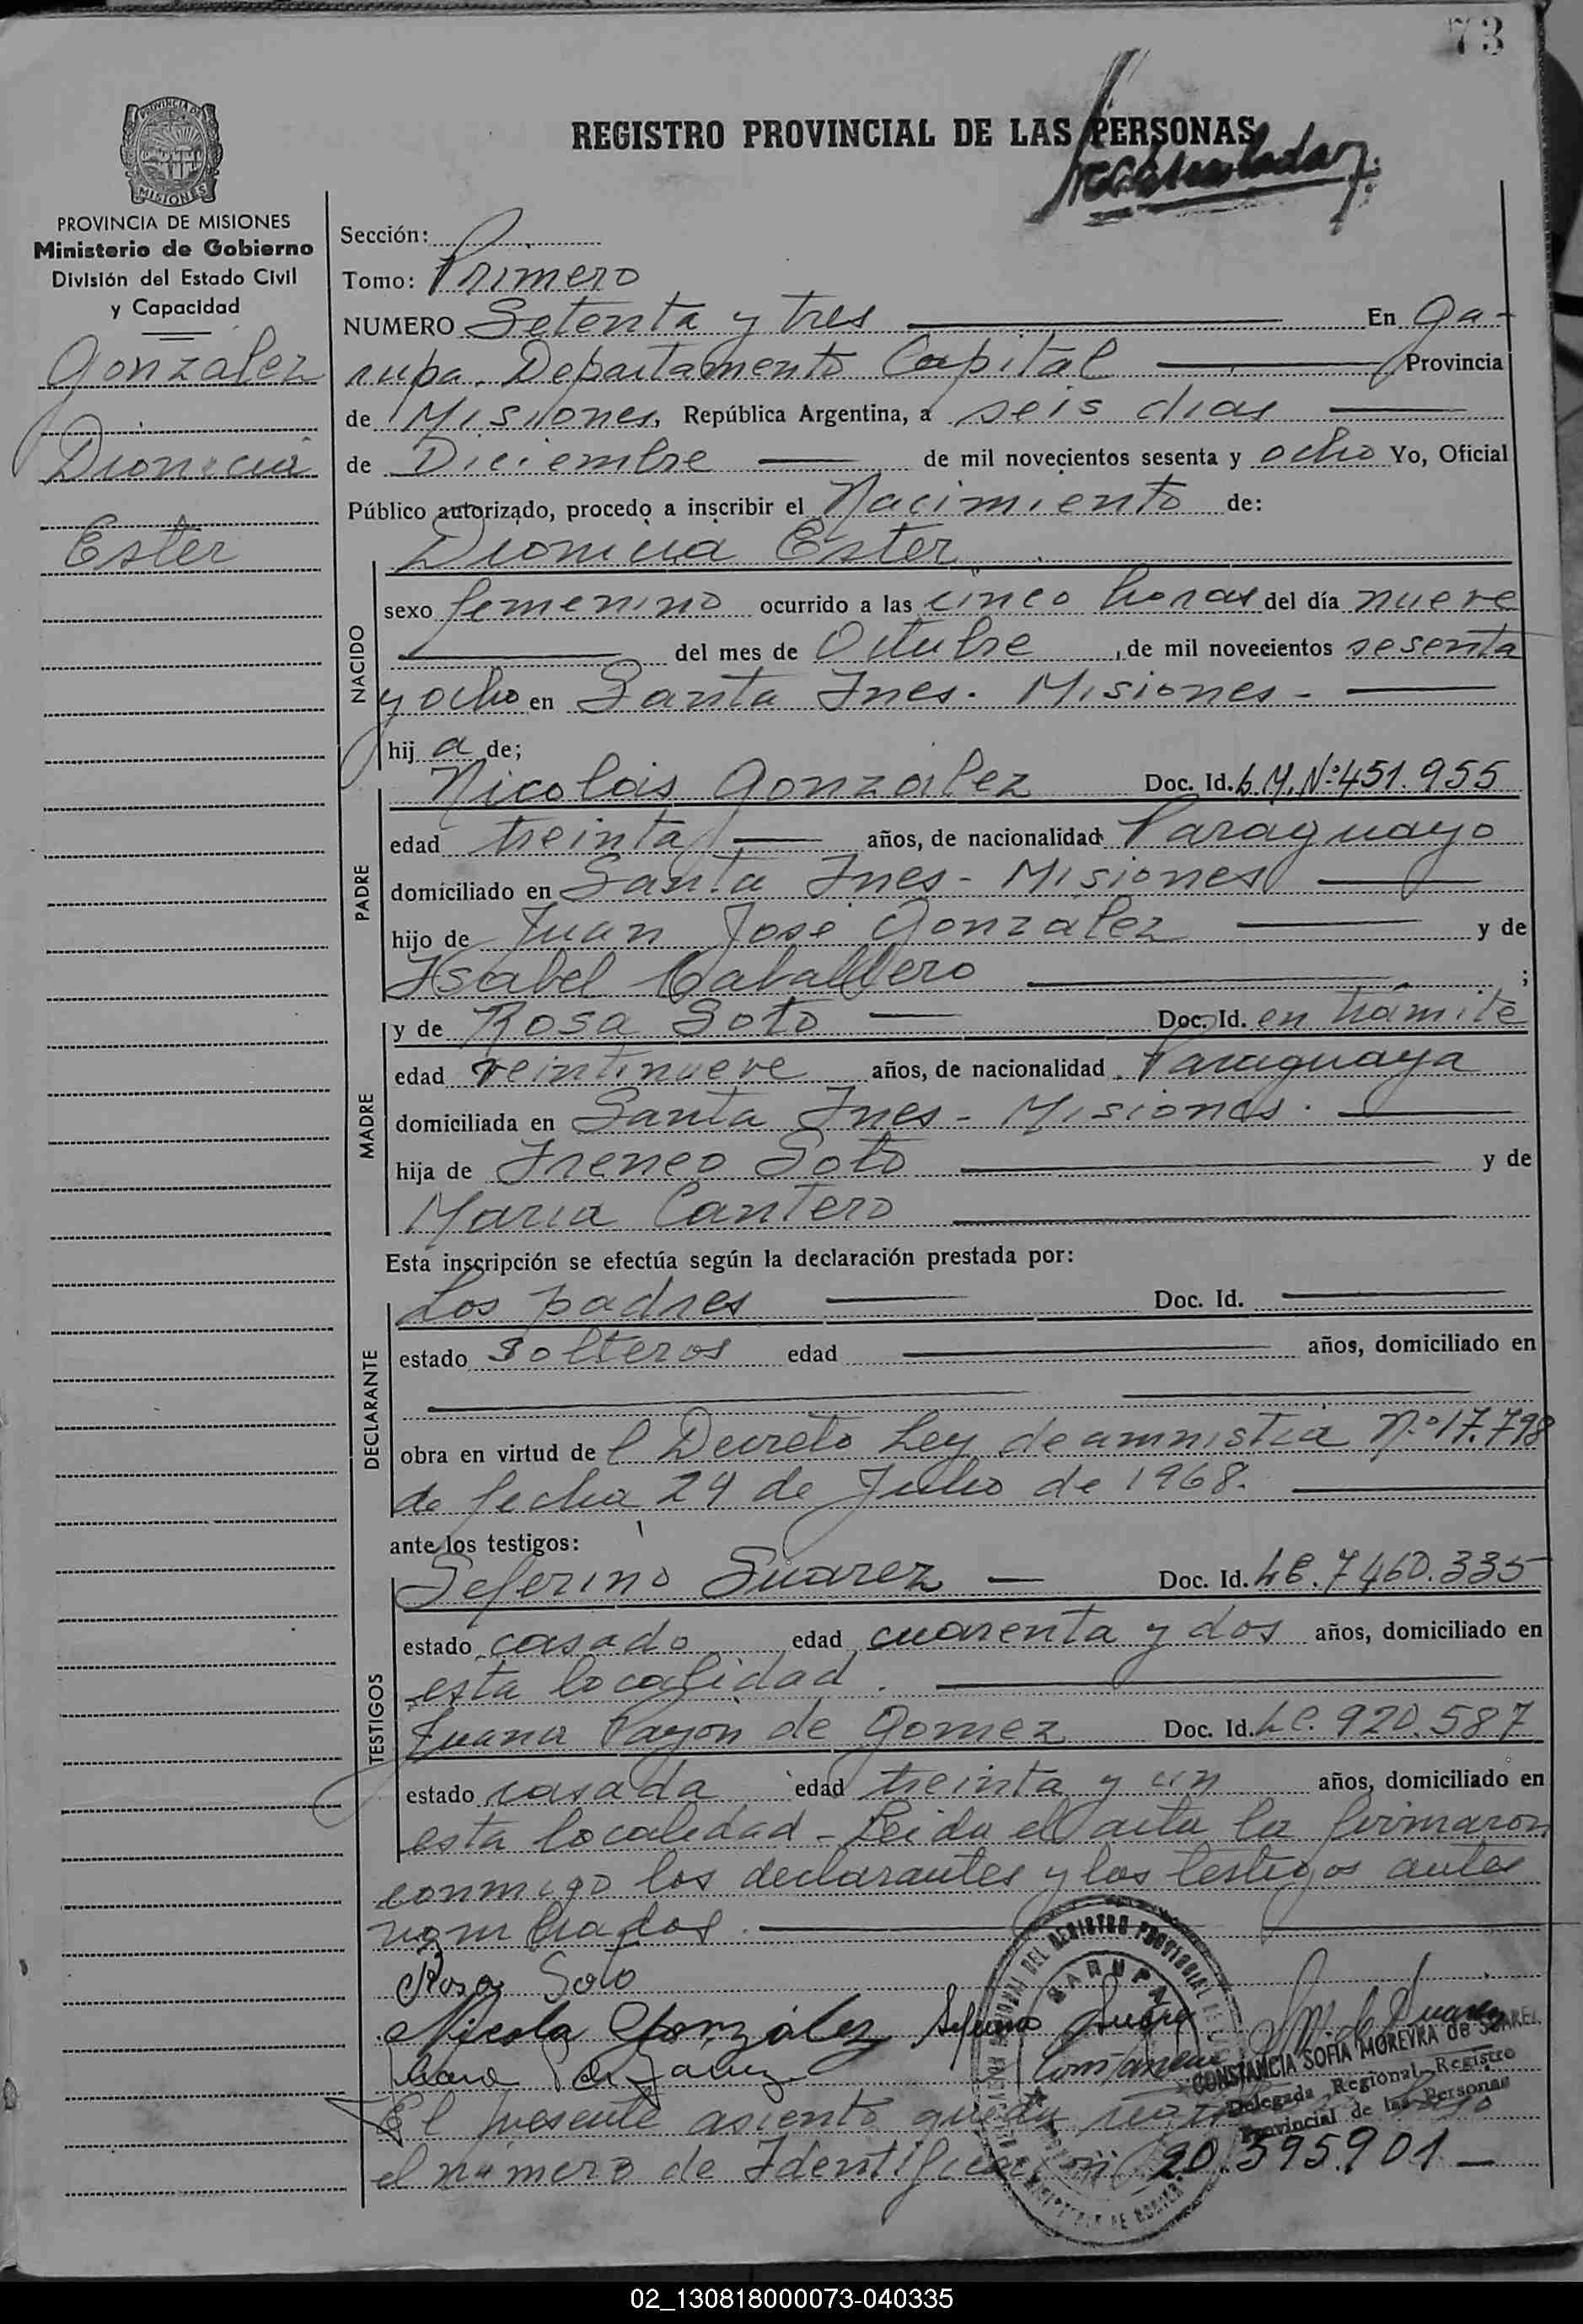 73
REGISTRO PROVINCIAL DE LAS PERSONAS
PROVINCIA DE MISIONES
PROVINCIA DE MISIONES
Ministerio de Gobierno
División del Estado Civil
y Capacidad
Gonzalez
Dionicia
Ester
Sección:
Tomo: Primero
NUMERO Setenta y tres En Ga-
rupa. Departamento Capital Provincia
de Misiones, República Argentina, a seis dias
de Diciembre de mil novecientos sesenta y ocho Yo, Oficial
Público autorizado, procedo a inscribir el Nacimiento de:
Dionicia Ester
NACIDO
sexo femenino ocurrido a las cinco horas del día nueve
del mes de Octubre, de mil novecientos sesenta
y ocho en Santa Ines. Misiones -
hij a de;
PADRE
Nicolás Gonzalez Doc. Id. L.M. Nº 451.955
edad treinta años, de nacionalidad Paraguayo
domiciliado en Santa Ines - Misiones
hijo de Juan José Gonzalez y de
Isabel Caballero ;
MADRE
y de Rosa Soto Doc. Id. en trámite
edad veintinueve años, de nacionalidad Paraguaya
domiciliada en Santa Ines - Misiones.
hija de Ireneo Soto y de
Maria Cantero
Esta inscripción se efectúa según la declaración prestada por:
DECLARANTE
Los padres Doc. Id.
estado solteros edad años, domiciliado en
obra en virtud de l Decreto Ley de amnistia Nº 17.798
de fecha 24 de Julio de 1968.
ante los testigos:
TESTIGOS
Seferino Suarez Doc. Id. LE. 7460.335
estado casado edad cuarenta y dos años, domiciliado en
esta localidad.
Juana Payon de Gomez Doc. Id. LC. 920.587
estado casada edad treinta y un años, domiciliado en
esta localidad - Leida el acta la firmaron
conmigo los declarantes y los testigos antes
nombrados.
Rosa Soto
Nicola González Seferino Suarez
GARUPA
CONSTANCIA SOFIA MOREYRA de SUAREZ
Delegada Regional Registro
Provincial de las Personas
El presente asiento queda
el número de Identificación 20.395.901
02_130818000073-040335